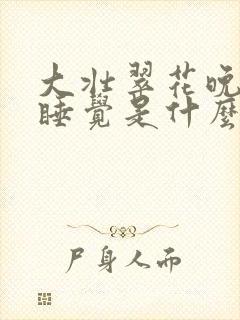 大壮翠花晚
睡覺是什麼
尸身人而